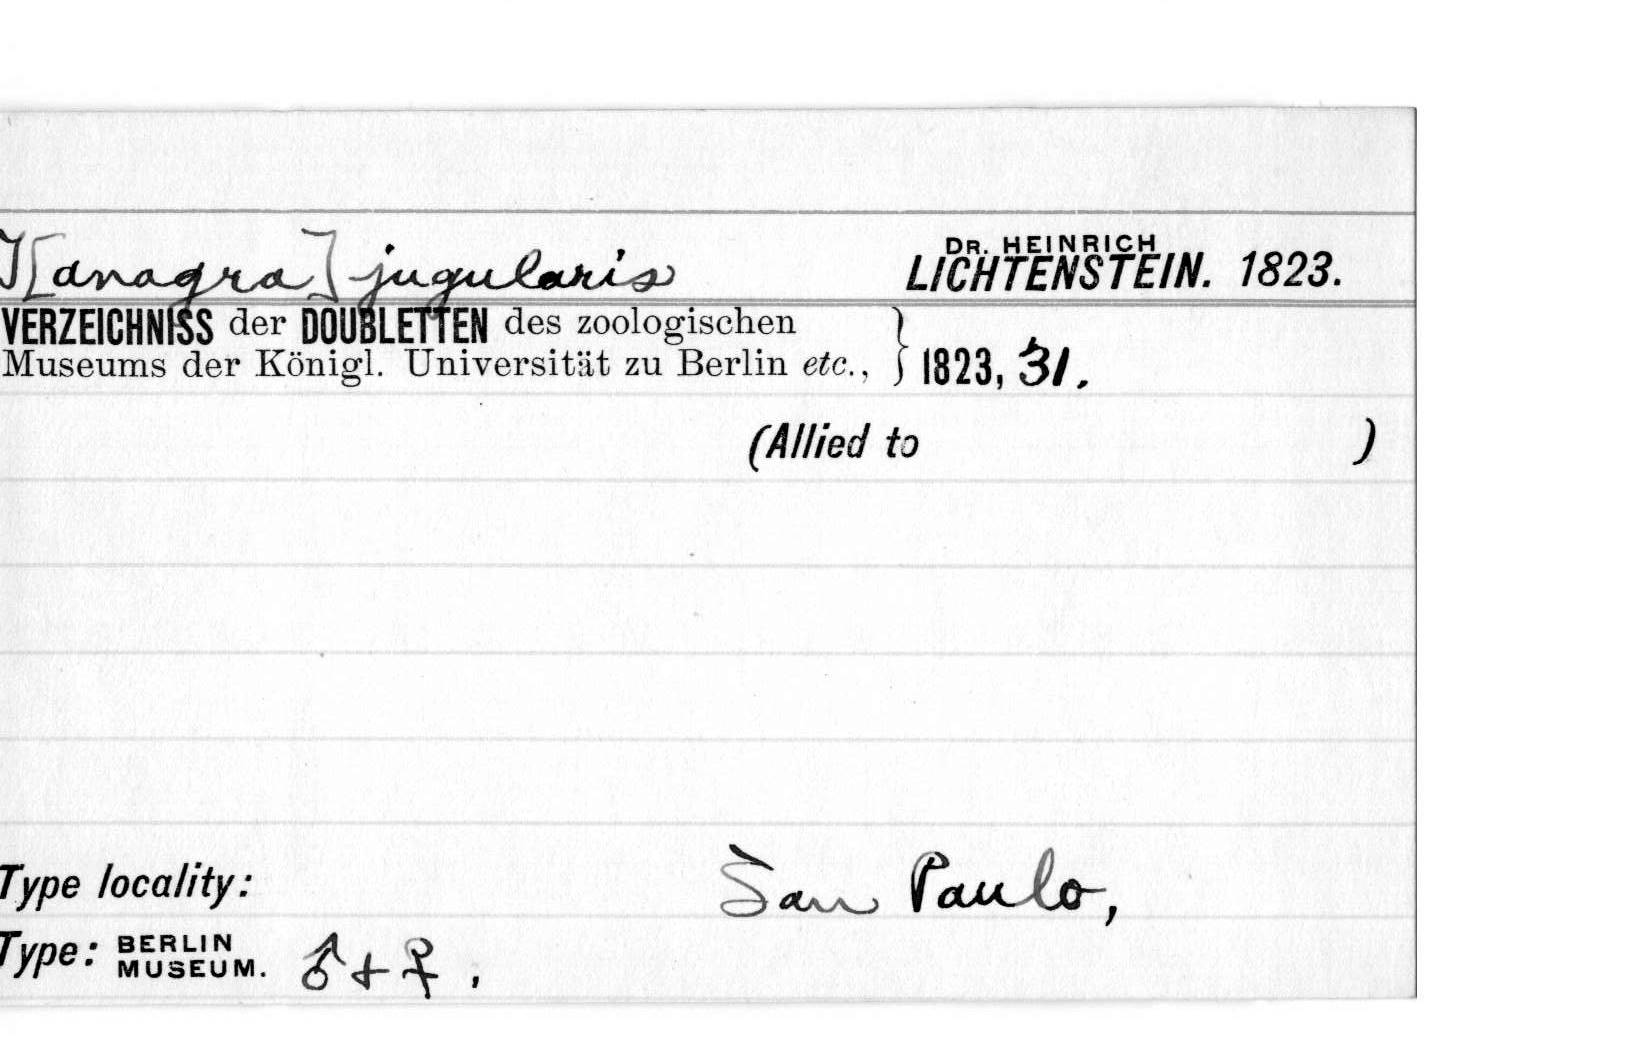 T[anagra] jugularis DR. HEINRICH LICHTENSTEIN. 1823.
VERZEICHNISS der DOUBLETTEN des zoologischen
Museums der Königl. Universität zu Berlin etc., } 1823, 31.
(Allied to )
Type locality: San Paulo,
Type: BERLIN MUSEUM. ♂ + ♀.